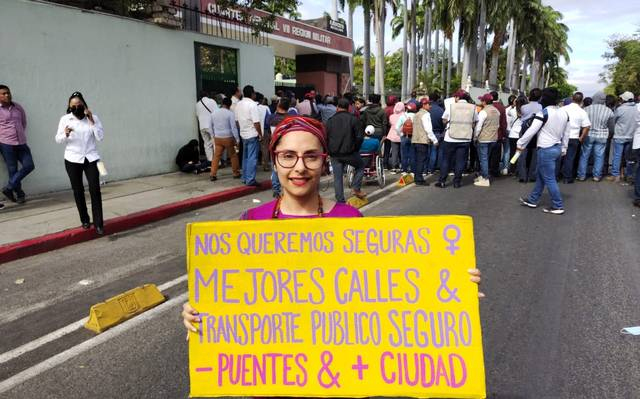 CUARTEL GENERAL VII REGIÓN MILITAR
NOS QUEREMOS SEGURAS ♀
MEJORES CALLES &
TRANSPORTE PUBLICO SEGURO
- PUENTES & + CIUDAD